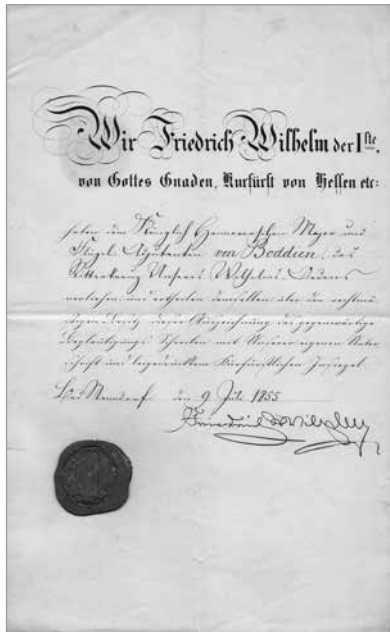 Wir Friedrich Wilhelm der I^ste,
von Gottes Gnaden, Kurfürst von Hessen etc:
haben dem Königlich Hannoverschen Major und
Flügel-Adjutanten von Boddien, das
Ritterkreuz Unseres Wilhelms-Ordens
verliehen und ertheilen demselben über den rechtmä-
ßigen Besitz dieser Auszeichnung das gegenwärtige
Beglaubigungs-Schreiben mit Unserer eigenen Unter-
schrift und beigedrucktem Kurfürstlichen Insiegel.
Nenndorf den 9 Juli 1855
Friedrich Wilhelm